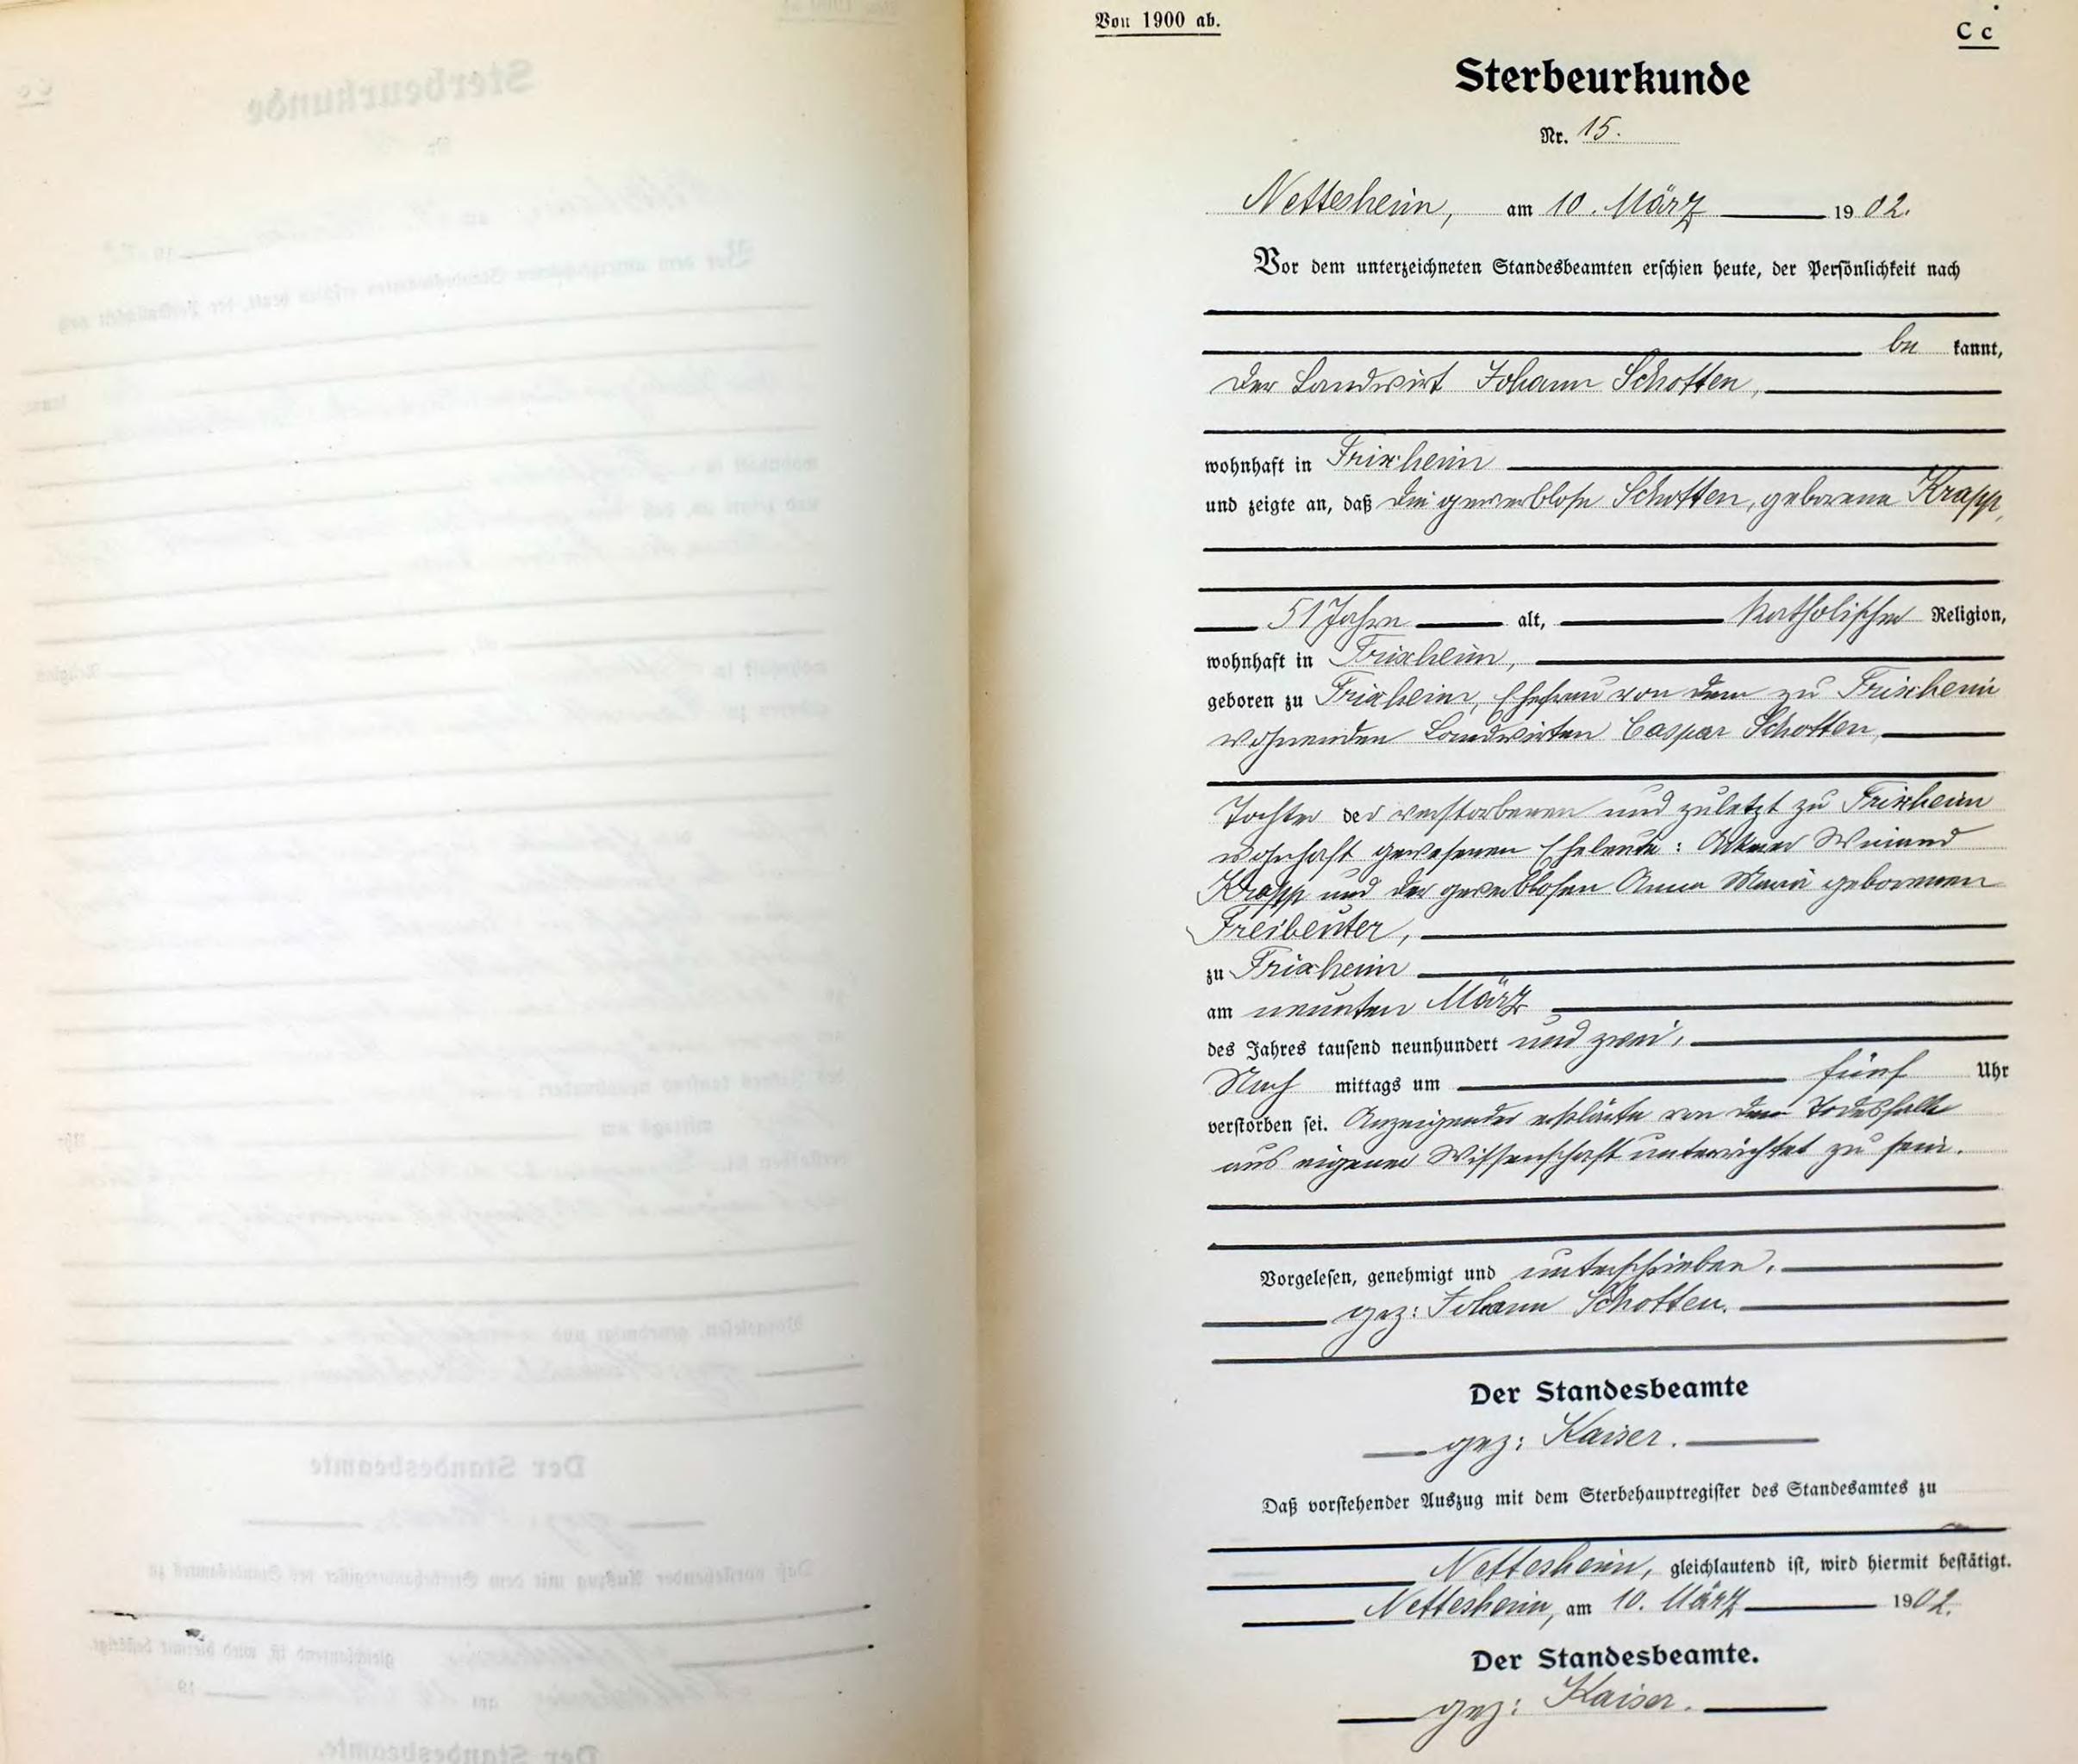 Von 1900 ab.
C c
Sterbeurkunde
Nr. 15.
Nettesheim, am 10. März 1902.
Vor dem unterzeichneten Standesbeamten erschien heute, der Persönlichkeit nach
be kannt,
der Landwirt Johann Schotten,
wohnhaft in Frixheim
und zeigte an, daß die gewerblose Schotten, geborene Krapp,
51 Jahre alt, katholischer Religion,
wohnhaft in Frixheim,
geboren zu Frixheim, Ehefrau von dem zu Frixheim
wohnenden Landwirten Caspar Schotten,
Tochter der verstorbenen und zuletzt zu Frixheim
wohnhaft gewesenen Eheleute: Ackerer Winand
Krapp und der gewerblosen Anna Maria geborenen
Freibeuter,
zu Frixheim
am neunten März
des Jahres tausend neunhundert und zwei,
Nach mittags um fünf Uhr
verstorben sei. Anzeigender erklärte von dem Todesfalle
aus eigener Wissenschaft unterrichtet zu sein.
Vorgelesen, genehmigt und unterschrieben.
gez: Johann Schotten.
Der Standesbeamte
gez: Kaiser.
Daß vorstehender Auszug mit dem Sterbehauptregister des Standesamtes zu
Nettesheim, gleichlautend ist, wird hiermit bestätigt.
Nettesheim, am 10. März 1902.
Der Standesbeamte.
gez: Kaiser.